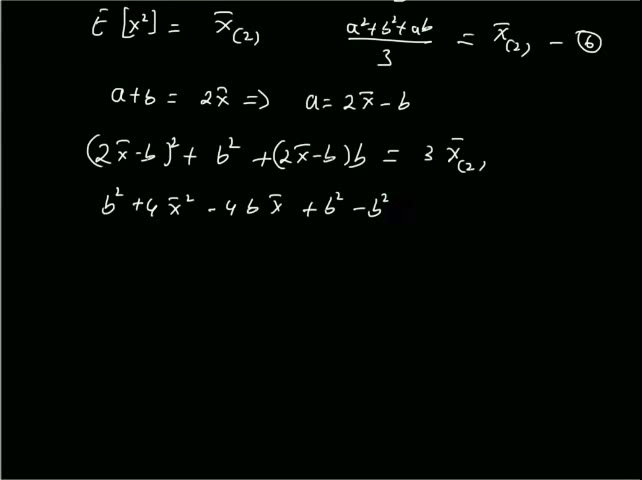 E [x²] = x̄₍₂₎   (a²+b²+ab)/3 = x̄₍₂₎ – ⑥
a+b = 2x̄ ⇒ a = 2x̄ – b
(2x̄–b)² + b² + (2x̄–b)b = 3 x̄₍₂₎
b² + 4x̄² – 4bx̄ + b² – b²